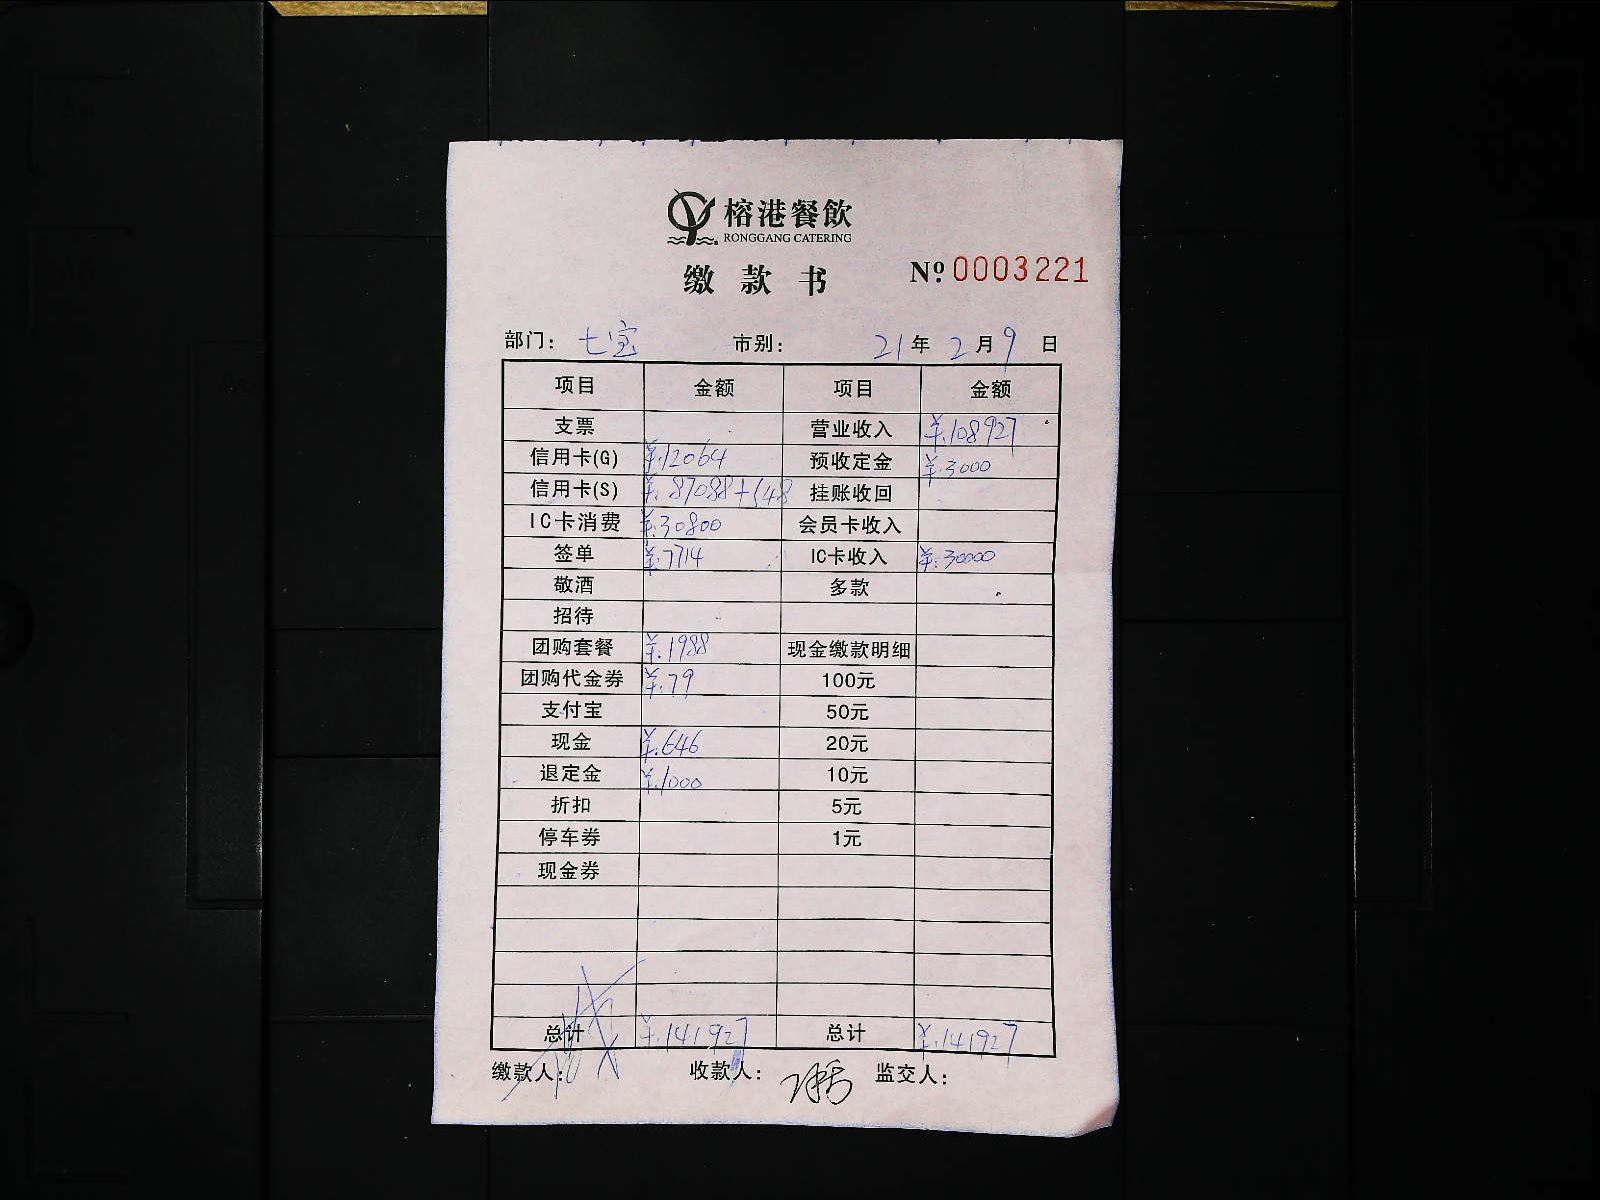 榕港餐飲
RONGGANG CATERING
缴款书 Nº 0003221
部门: 七宝 市别: 21年2月9日
项目 金额 项目 金额
支票 营业收入 ¥.108927
信用卡(G) ¥.12064 预收定金 ¥.3000
信用卡(S) ¥.87088+548 挂账收回
IC卡消费 ¥.30800 会员卡收入
签单 ¥.7714 IC卡收入 ¥.30000
敬酒 多款
招待
团购套餐 ¥.1988 现金缴款明细
团购代金券 ¥.79 100元
支付宝 50元
现金 ¥.646 20元
退定金 ¥.1000 10元
折扣 5元
停车券 1元
现金券
总计 ¥.141927 总计 ¥.141927
缴款人: 收款人: 监交人: